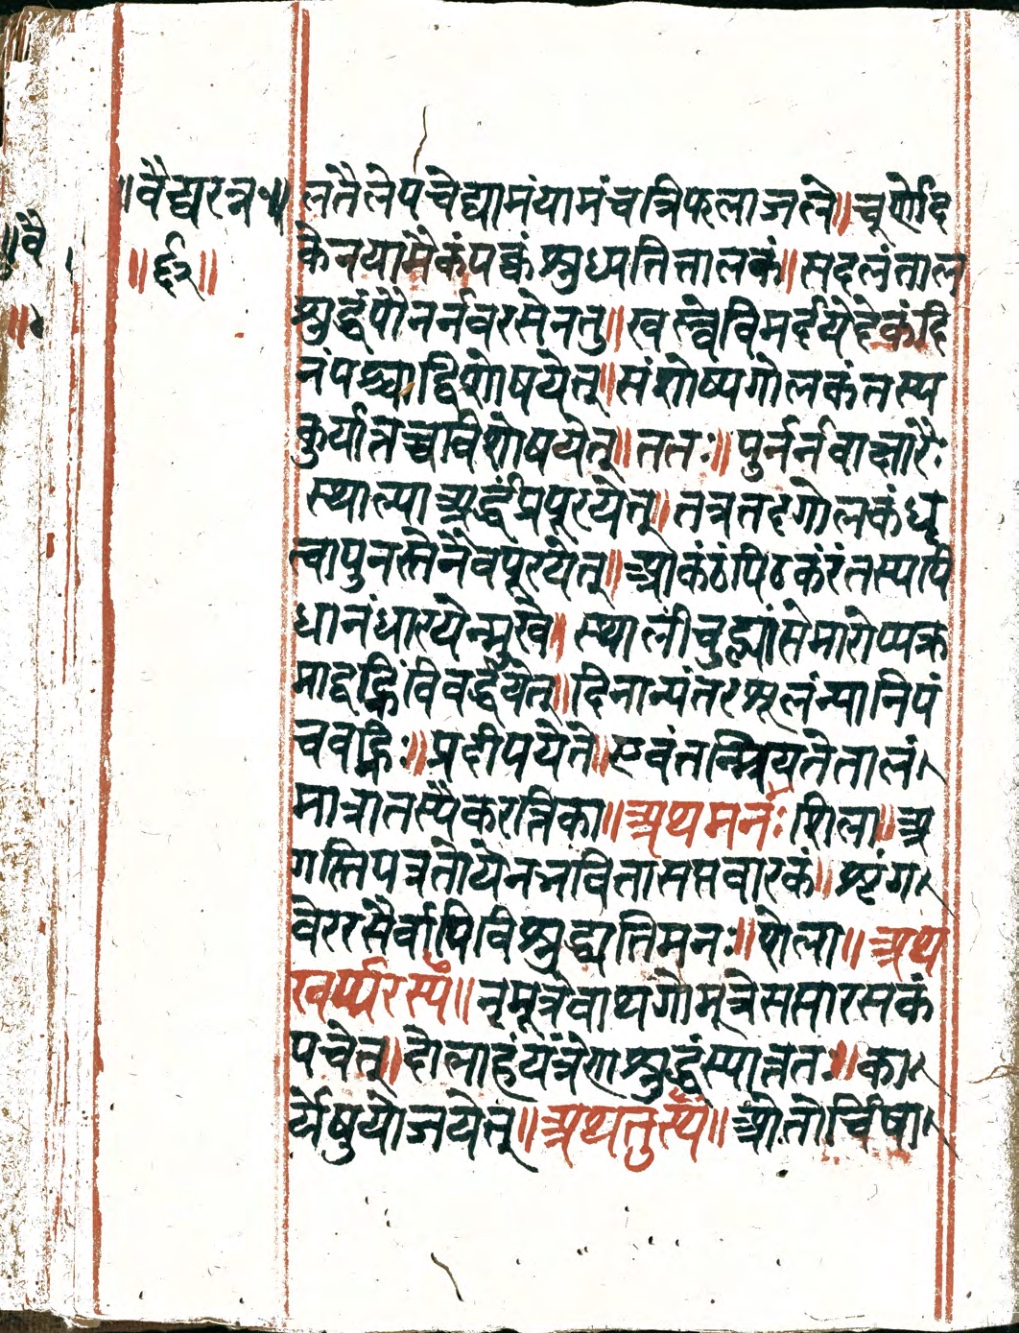 ॥वैद्यरत्न॰॥
॥६२॥
लतैलेपचेद्यामंयामंचत्रिफलाजले॥चूर्णोद
केनयामैकंपक्वंश्रुध्यतितालकं॥सदलंताल
श्रुर्द्धंपौनर्नवरसेनतु॥खल्वेविमर्द्दयेद्देकंदि
नंपश्चाद्विशोषयेत्॥संशोष्यगोलकंतस्य
कुर्यात्तच्चविशोषयेत्॥ततः॥पुर्नर्नवाक्षारैः
स्थाल्याअर्द्धंप्रपूरयेत्॥तत्रतद्गोलकंधृ
त्वापुनस्तेनैवपूरयेत्॥आकंठंपिठकंरंतस्यपि
धानंधारयेन्मुखे॥स्थालींचुह्यांसेमारोप्यक्र
माद्वह्निंविवर्द्धयेत्॥दिनान्यंतरश्रूलंन्यानिपं
चवह्निः॥प्रदीपयेते॥एवंतन्म्रियतेतालं
मात्रातस्यैकरात्निका॥अथमनः शिला॥अ
गस्तिपत्रतोयेनभवितासप्तवारकं॥श्रृंग
वेररसैर्वापिविश्रुद्ध्यतिमनः॥शेला॥अथ
खर्प्परस्य॥नृमूत्रेवाथगोमूत्रेसप्तारसकं
पचेत्॥दोलाहंयंत्रेणश्रुद्धंस्यात्ततः॥का
र्येषुयोजयेत्॥अथतुस्य॥ओतोर्चिषा